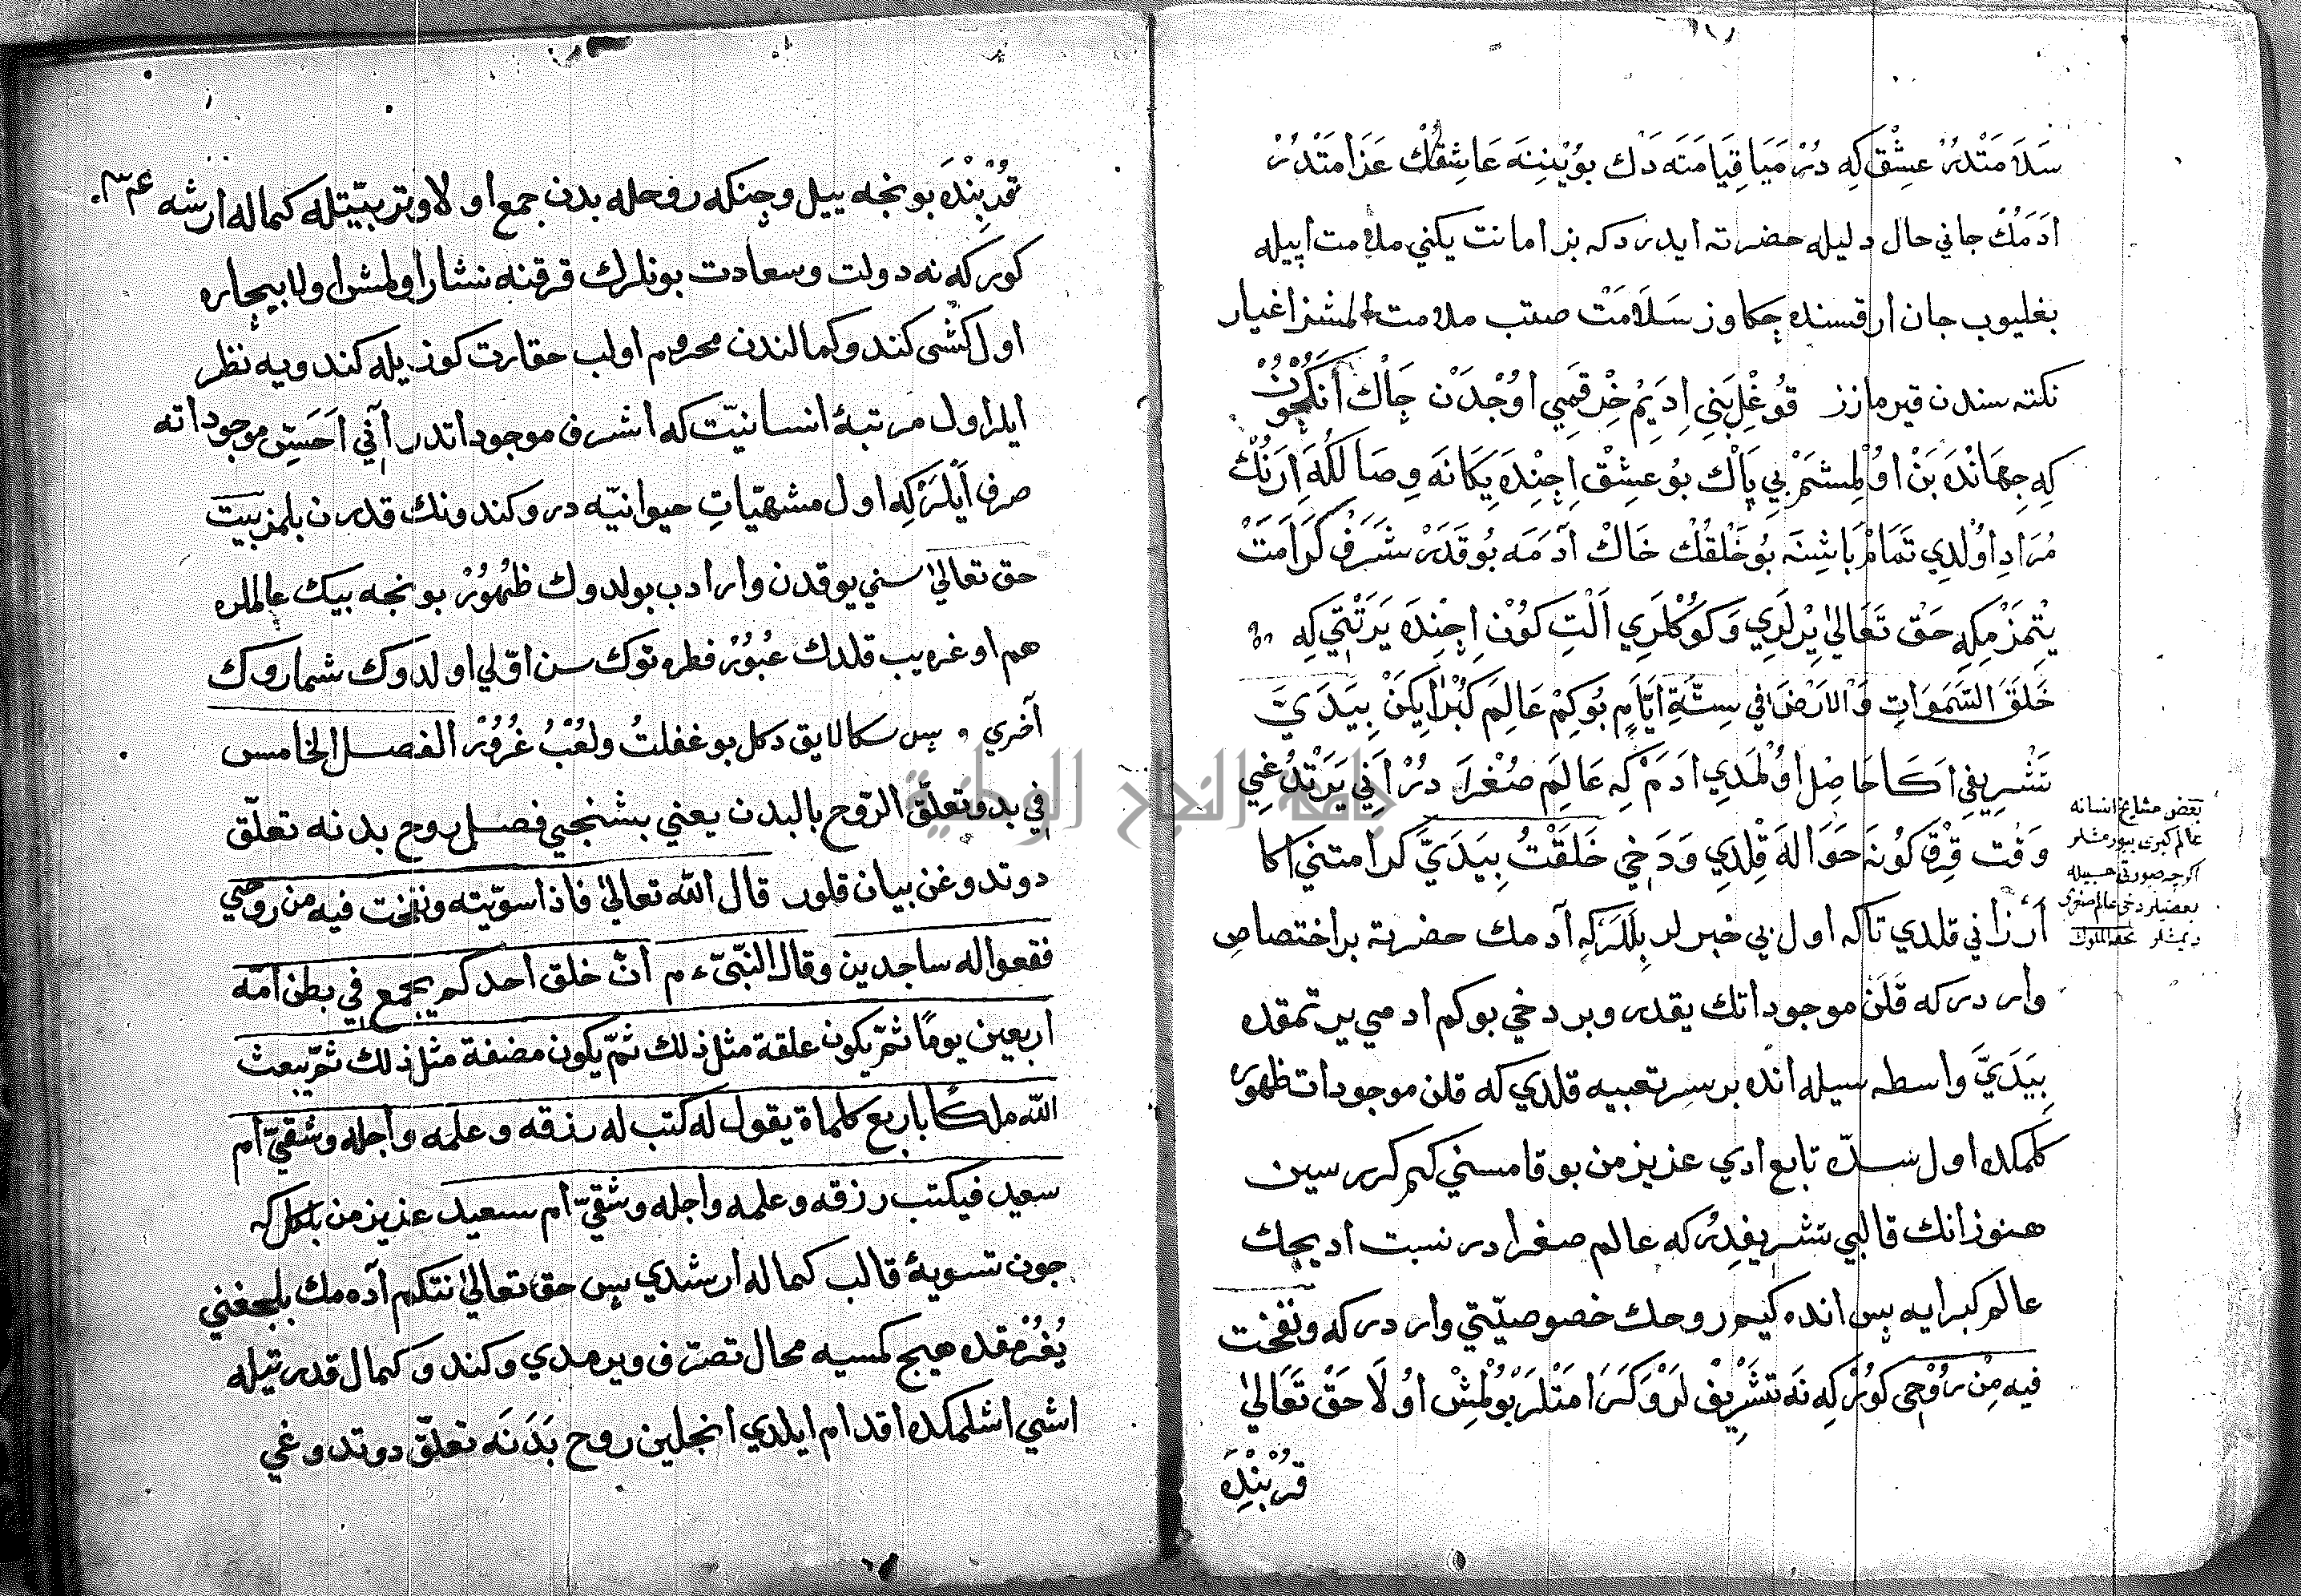 سَلَامَتْدُرْ عِشْق كِه دُرْ مَيَا قِيَامَتَه دَك بُويْنِنَه عَاشِقْڭْ غَرَامَتْدُرْ
ادَمُڭ جاني حال دليله حضرته ايدردكه بز امانت يكني ملامت اپيله
بغليوب جان ارقسنده چكاوز سَلَامَتْ صتب ملامت المشز اغيار
نكته سندن قيرمازز قُوغِلْ بَنِي اِدَيِمْ خِرْقَمِي اُوجْدَنْ چَاكْ اَنُكْچُونْ
كِه جِهَانْدَه بَنْ اُولْمِشَمْ بِي پَاكْ بُو عِشْق اِچِنْدَه يَكَانَه وِصَالُكَه اِرَنُڭْ
مُرَادِ اُولْدِي تَمَامْ بَاشِنَه بُو خَلْقُڭْ خَاكْ آدَمَه بُو قَدَرْ شَرَفْ كَرَامَتْ
يِتْمَزْ مِكِه حَقْ تَعَالىٰ يِرْلَرِي وَكُوكْلَرِي اَلْتِ كُونْ اِچِنْدَه يَرَتْتِي كِه
خَلَقَ السَّمَوَاتِ وَالاَرْضَ في سِتَّةِ اَيَّامٍ بُو كِمْ عَالَمِ كُبْرٰا ايكَنْ بِيَدَيَّ
تَشْرِيفِي اَكَا حَاصِلْ اُولْمَدِي ادَمْ كِه عَالَمِ صُغْرَا دُرْ اَنِي يَرَتْدُغِي
وَقْت قِرْق كُونَه حَوَالَه قِلْدِي وَدَخِي خَلَقْتُ بِيَدَيَّ كرامتني اكا
اَرْزَاني قلدي تاكه اول بي خبرلر بِلَلَرْكِه آدمك حضرته بر اختصاص
وار دركه قَلَنْ موجوداتك يقدر وبر دخي بوكم ادمي يرتمقده
بِيَدَيَّ واسطه سيله انده بر سِر تعبيه قلدي كه قلن موجودات ظهوره
كلمكده اول سرّه تابع ادي عزيز من بو قامسني كم كرر سين
هنوز انك قالبي تشريفِدُر كه عالم صغرا در نسبت اديجك
عالم كبرايه پس انده كيم روحك خصوصيّتي وار دركه ونفخت
فيه مِنْ رُوحِي كُورْ كِه نَه تَشْرِيفْ لَرْ وَكَرَامَتْلَرْ بُولْمِشْ اُولَا حَقْ تَعَالىٰ
قُرْبِنْدَه
بعض مشايخ انسانه
عالم كبرى بيورمشلر
اكرچه صورتي حسبيله
بعضيلر دخي عالم صغرى
ديمشلر تحفة الملوك
قُرْبِنْدَه بونجه ييل وچنكه روحله بدن جمع اولا وتربيّتله كماله ارشه
كور كه نه دولت وسعادت بونلرك فرقنه نثار اولمش اولا بيچاره
اول كشى كندو كمالندن محروم اولب حقارت كوز يله كندويه نظر
ايلر اول مرتبهٔ انسانيّت كه اشرف موجوداتدر آني اَخَسِّ موجوداته
صرف اَيْلَرْكِه اول مشهيّاتِ حيوانيّه در وكندونك قدرن بلمز بيت
حق تعالىٰ سني يوقدن وار ادب بولدوك ظُهُورْ بونجه بيك عالملره
هم اوغريب قلدك عُبُورْ فطره توك سن اوّلي اولدوك شماروك
آخري پس سكا لايق دكل بو غفلتُ ولَعْبُ غُرُورْ الفصل الخامس
في بدو تعلّق الرّوح بالبدن يعني بشنجي فصل روح بدنه تعلّق
دوتدوغن بيان قلور قال الله تعالىٰ فاذا سوّيته ونفخت فيه من روحي
فقعوا له ساجدين وقال النّبيّ ءم انّ خلق احدكم يجمع في بطن امّه
اربعين يومًا ثمّ يكون علقة مثل ذلك ثمّ يكون مضغة مثل ذلك ثمّ يبعث
الله ملكًا باربع كلماة يقول له كتب له رزقه وعلمه واجله وشقيّ ام
سعيد فيكتب رزقه وعلمه واجله وشقيّ ام سعيد عزيز من بلكل كه
چون تسويهٔ قالب كماله ارشدي پس حق تعالىٰ نتكم آدمك بلچغني
يُغُرْمقده هيچ كمسيه محال تصرّف ويرمدي وكندو كمال قدرتيله
اشي اشلمكده اقدام ايلدي انجلين روح بَدَنَه تعلّق دوتدوغي